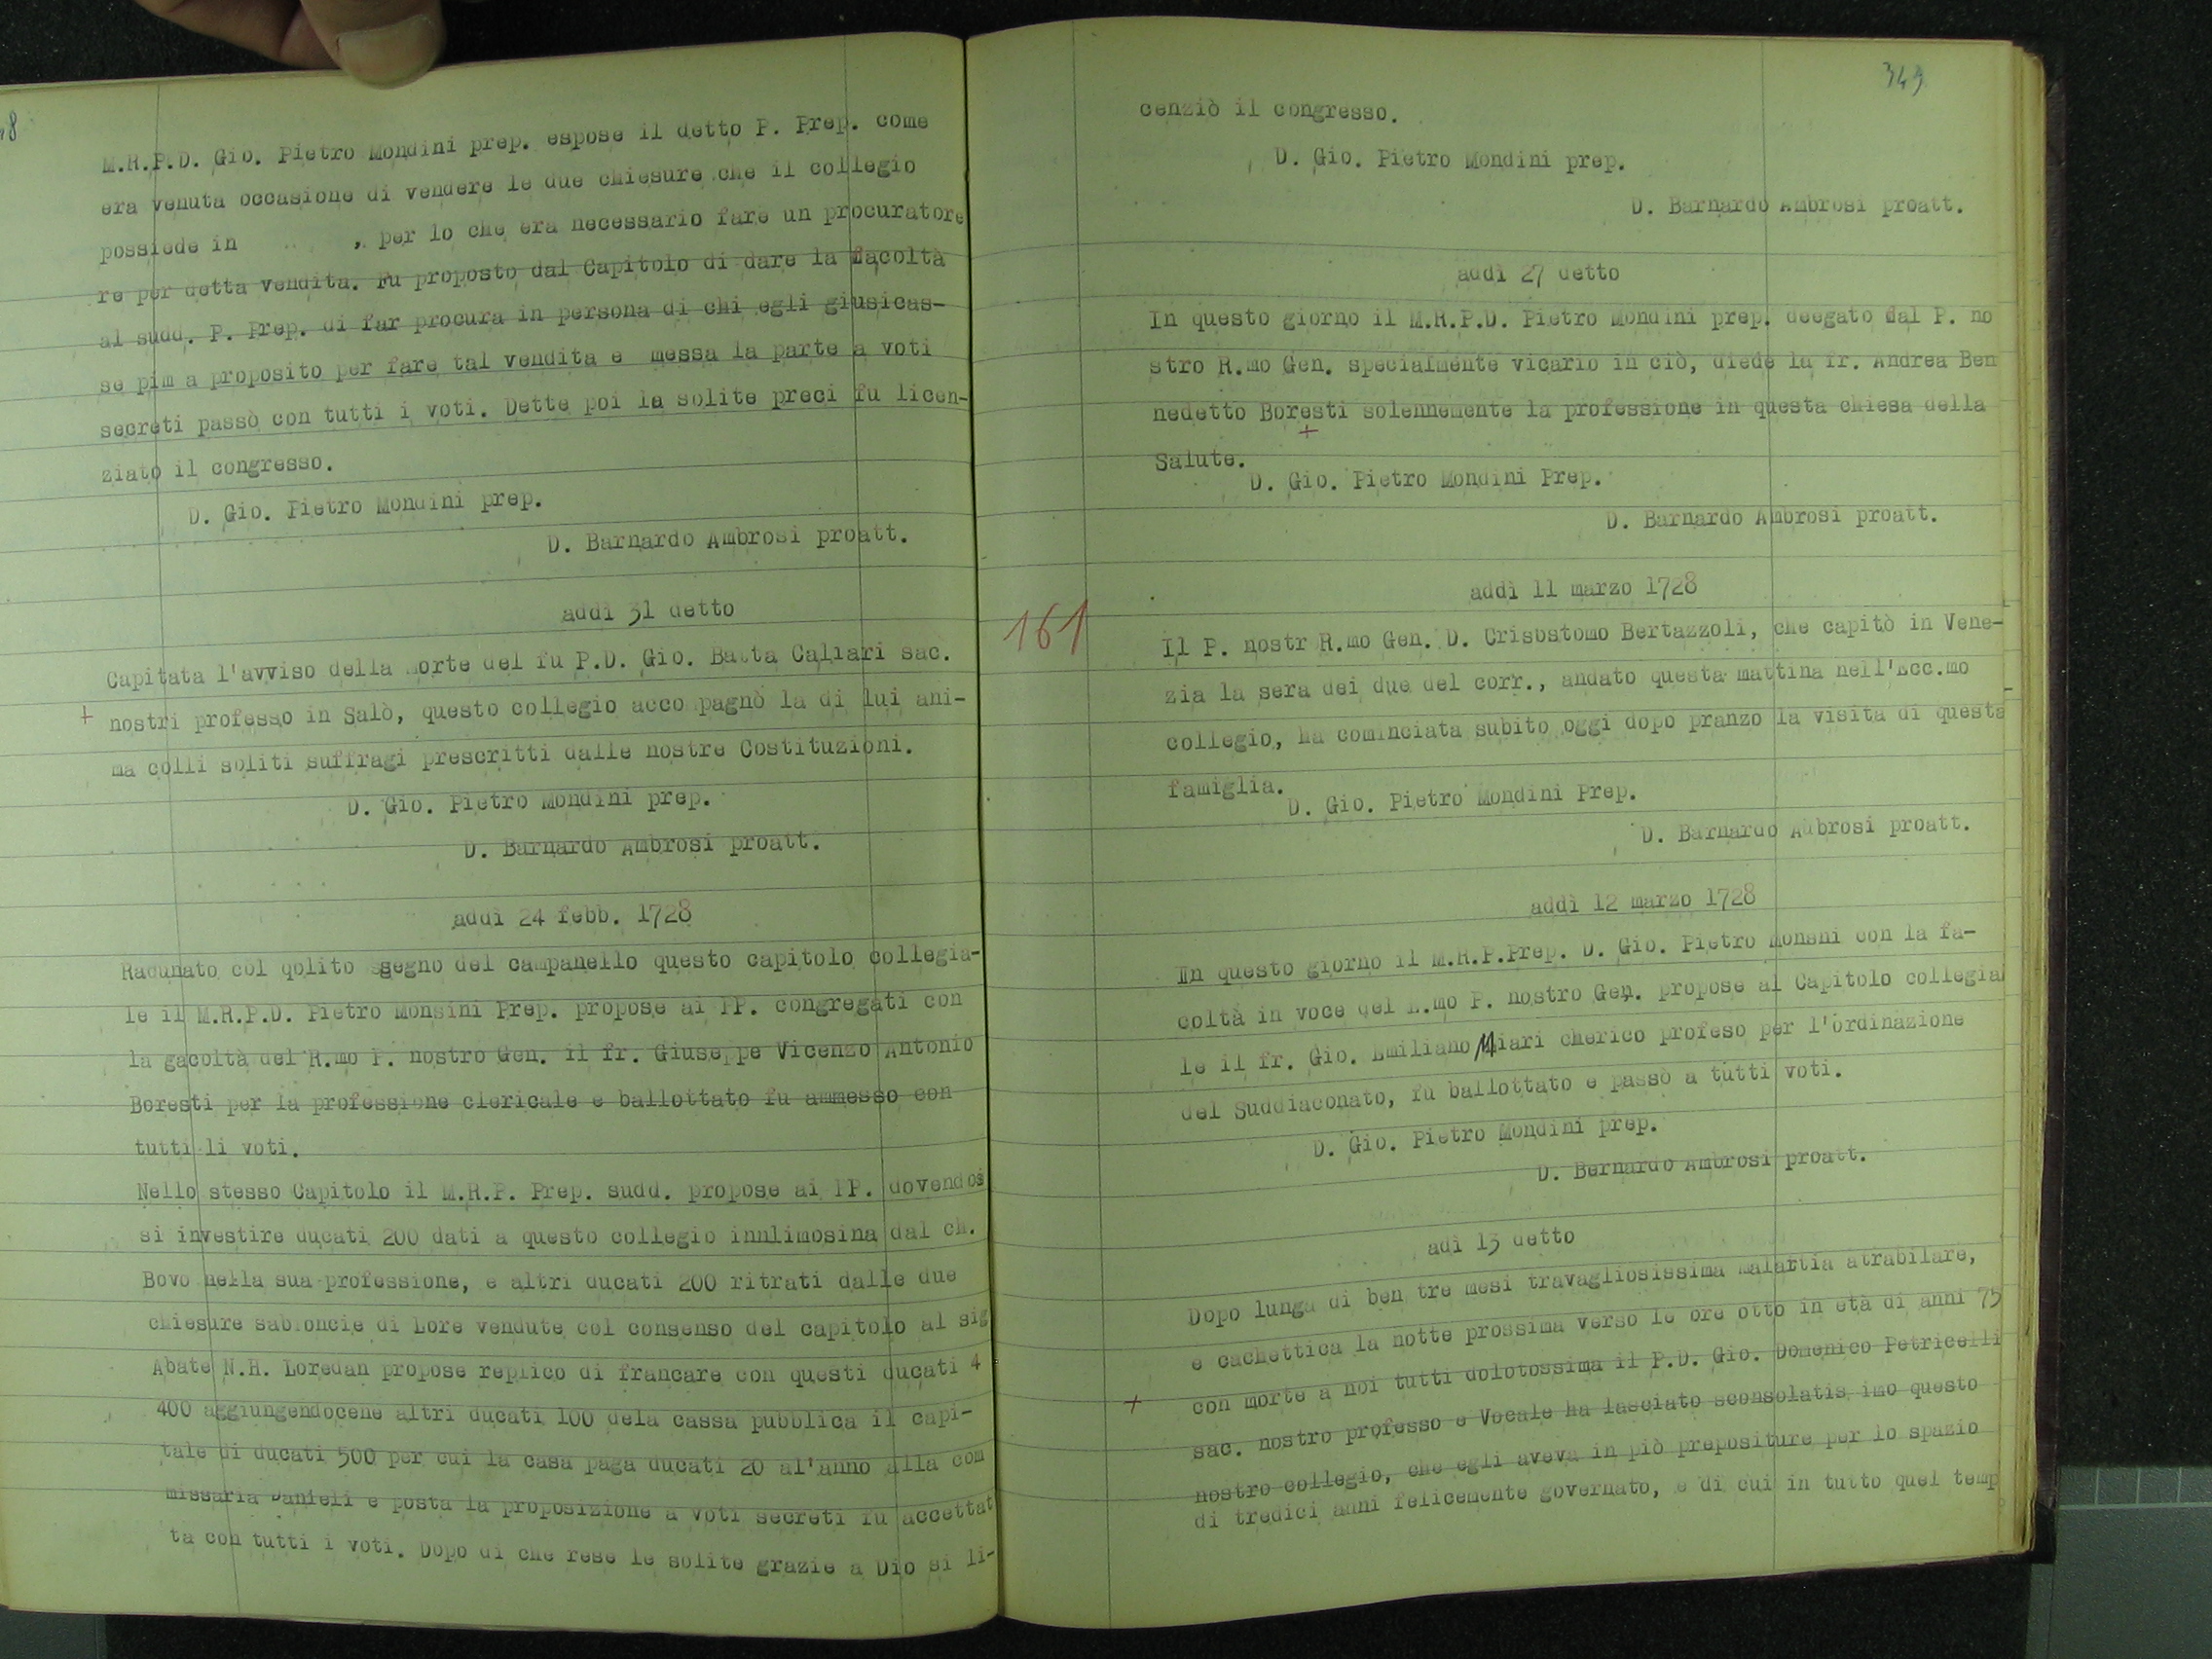 M.R.P.D. Gio. Pietro Mondini prep. espose il detto P. Prep. come
era venuta occasione di vendere le due chiesure che il collegio
possiede in , per lo che era necessario fare un procuratore
re per detta vendita. Fu proposto dal Capitolo di dare la facoltà
al sudd. P. Prep. di far procura in persona di chi egli giusicas-
se pim a proposito per fare tal vendita e messa la parte a voti
secreti passò con tutti i voti. Dette poi la solite preci fu licen-
ziato il congresso.
D. Gio. Pietro Mondini prep.
D. Barnardo Ambrosi proatt.
addì 31 detto
Capitata l'avviso della morte del fu P.D. Gio. Batta Caliari sac.
+ nostri professo in Salò, questo collegio acco pagnò la di lui ani-
ma colli soliti suffragi prescritti dalle nostre Costituzioni.
D. Gio. Pietro Mondini prep.
D. Barnardo Ambrosi proatt.
addì 24 febb. 1728
Radunato col qolito segno del campanello questo capitolo collegia-
le il M.R.P.D. Pietro Monsini Prep. propose ai PP. congregati con
la gacoltà del R.mo P. nostro Gen. il fr. Giuseppe Vicenzo Antonio
Boresti per la professione clericale e ballottato fu ammesso con
tutti li voti.
Nello stesso Capitolo il M.R.P. Prep. sudd. propose ai PP. dovendos
si investire ducati 200 dati a questo collegio innlimosina dal ch.
Bovo nella sua professione, e altri ducati 200 ritrati dalle due
chiesure sabioncie di Lore vendute col consenso del capitolo al sig
Abate N.H. Loredan propose replico di francare con questi ducati 4
400 aggiungendocene altri ducati 100 dela cassa pubblica il capi-
tale di ducati 500 per cui la casa paga ducati 20 al'anno alla com
missaria Danieli e posta la proposizione a voti secreti fu accettat
ta con tutti i voti. Dopo di che rese le solite grazie a Dio si li-
349
cenziò il congresso.
D. Gio. Pietro Mondini prep.
D. Barnardo Ambrosi proatt.
addì 27 detto
In questo giorno il M.R.P.D. Pietro Mondini prep. deegato dal P. no
stro R.mo Gen. specialmente vicario in ciò, diede la fr. Andrea Ben
nedetto Boresti solennemente la professione in questa chiesa della
+
Salute.
D. Gio. Pietro Mondini Prep.
D. Barnardo Ambrosi proatt.
addì 11 marzo 1728
161
Il P. nostr R.mo Gen. D. Crisostomo Bertazzoli, che capitò in Vene-
zia la sera dei due del corr., andato questa mattina nell'Ecc.mo
collegio, ha cominciata subito oggi dopo pranzo la visita di questa
famiglia.
D. Gio. Pietro Mondini Prep.
D. Barnardo Ambrosi proatt.
addì 12 marzo 1728
In questo giorno il M.R.P.Prep. D. Gio. Pietro Monsni con la fa-
coltà in voce del R.mo P. nostro Gen. propose al Capitolo collegia
le il fr. Gio. Emiliano Miari cherico profeso per l'ordinazione
del Suddiaconato, fu ballottato e passò a tutti voti.
D. Gio. Pietro Mondini prep.
D. Bernardo Ambrosi proatt.
adì 13 detto
Dopo lunga di ben tre mesi travagliosissima malattia atrabilare,
e cachettica la notte prossima verso le ore otto in età di anni 75
+ con morte a noi tutti dolotossima il P.D. Gio. Domenico Petricelli
sac. nostro professo e Vocale ha lasciato sconsolatis imo questo
nostro collegio, che egli aveva in piò prepositure per lo spazio
di tredici anni felicemente governato, e di cui in tutto quel temp